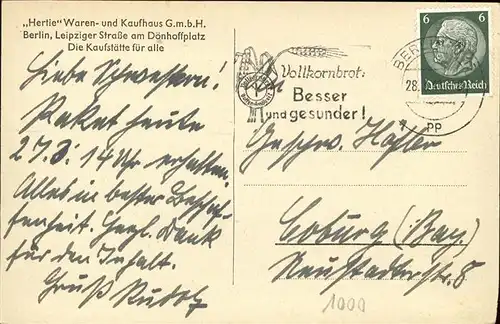 „Hertie“ Waren- und Kaufhaus G.m.b.H.
Berlin, Leipziger Straße am Dönhoffplatz
Die Kaufstätte für alle
Liebe Schwestern!
Paket heute
27.8. 14 Uhr erhalten.
Alles in bester Beschaf-
fenheit. Herzl. Dank
für den Inhalt.
Gruß Rudolf
Vollkornbrot:
Besser
und gesunder!
6 6
Deutsches Reich
BER
28.
PP
Geschw. Höfler
Coburg (Bay.)
Neustadterstr. 8
1000